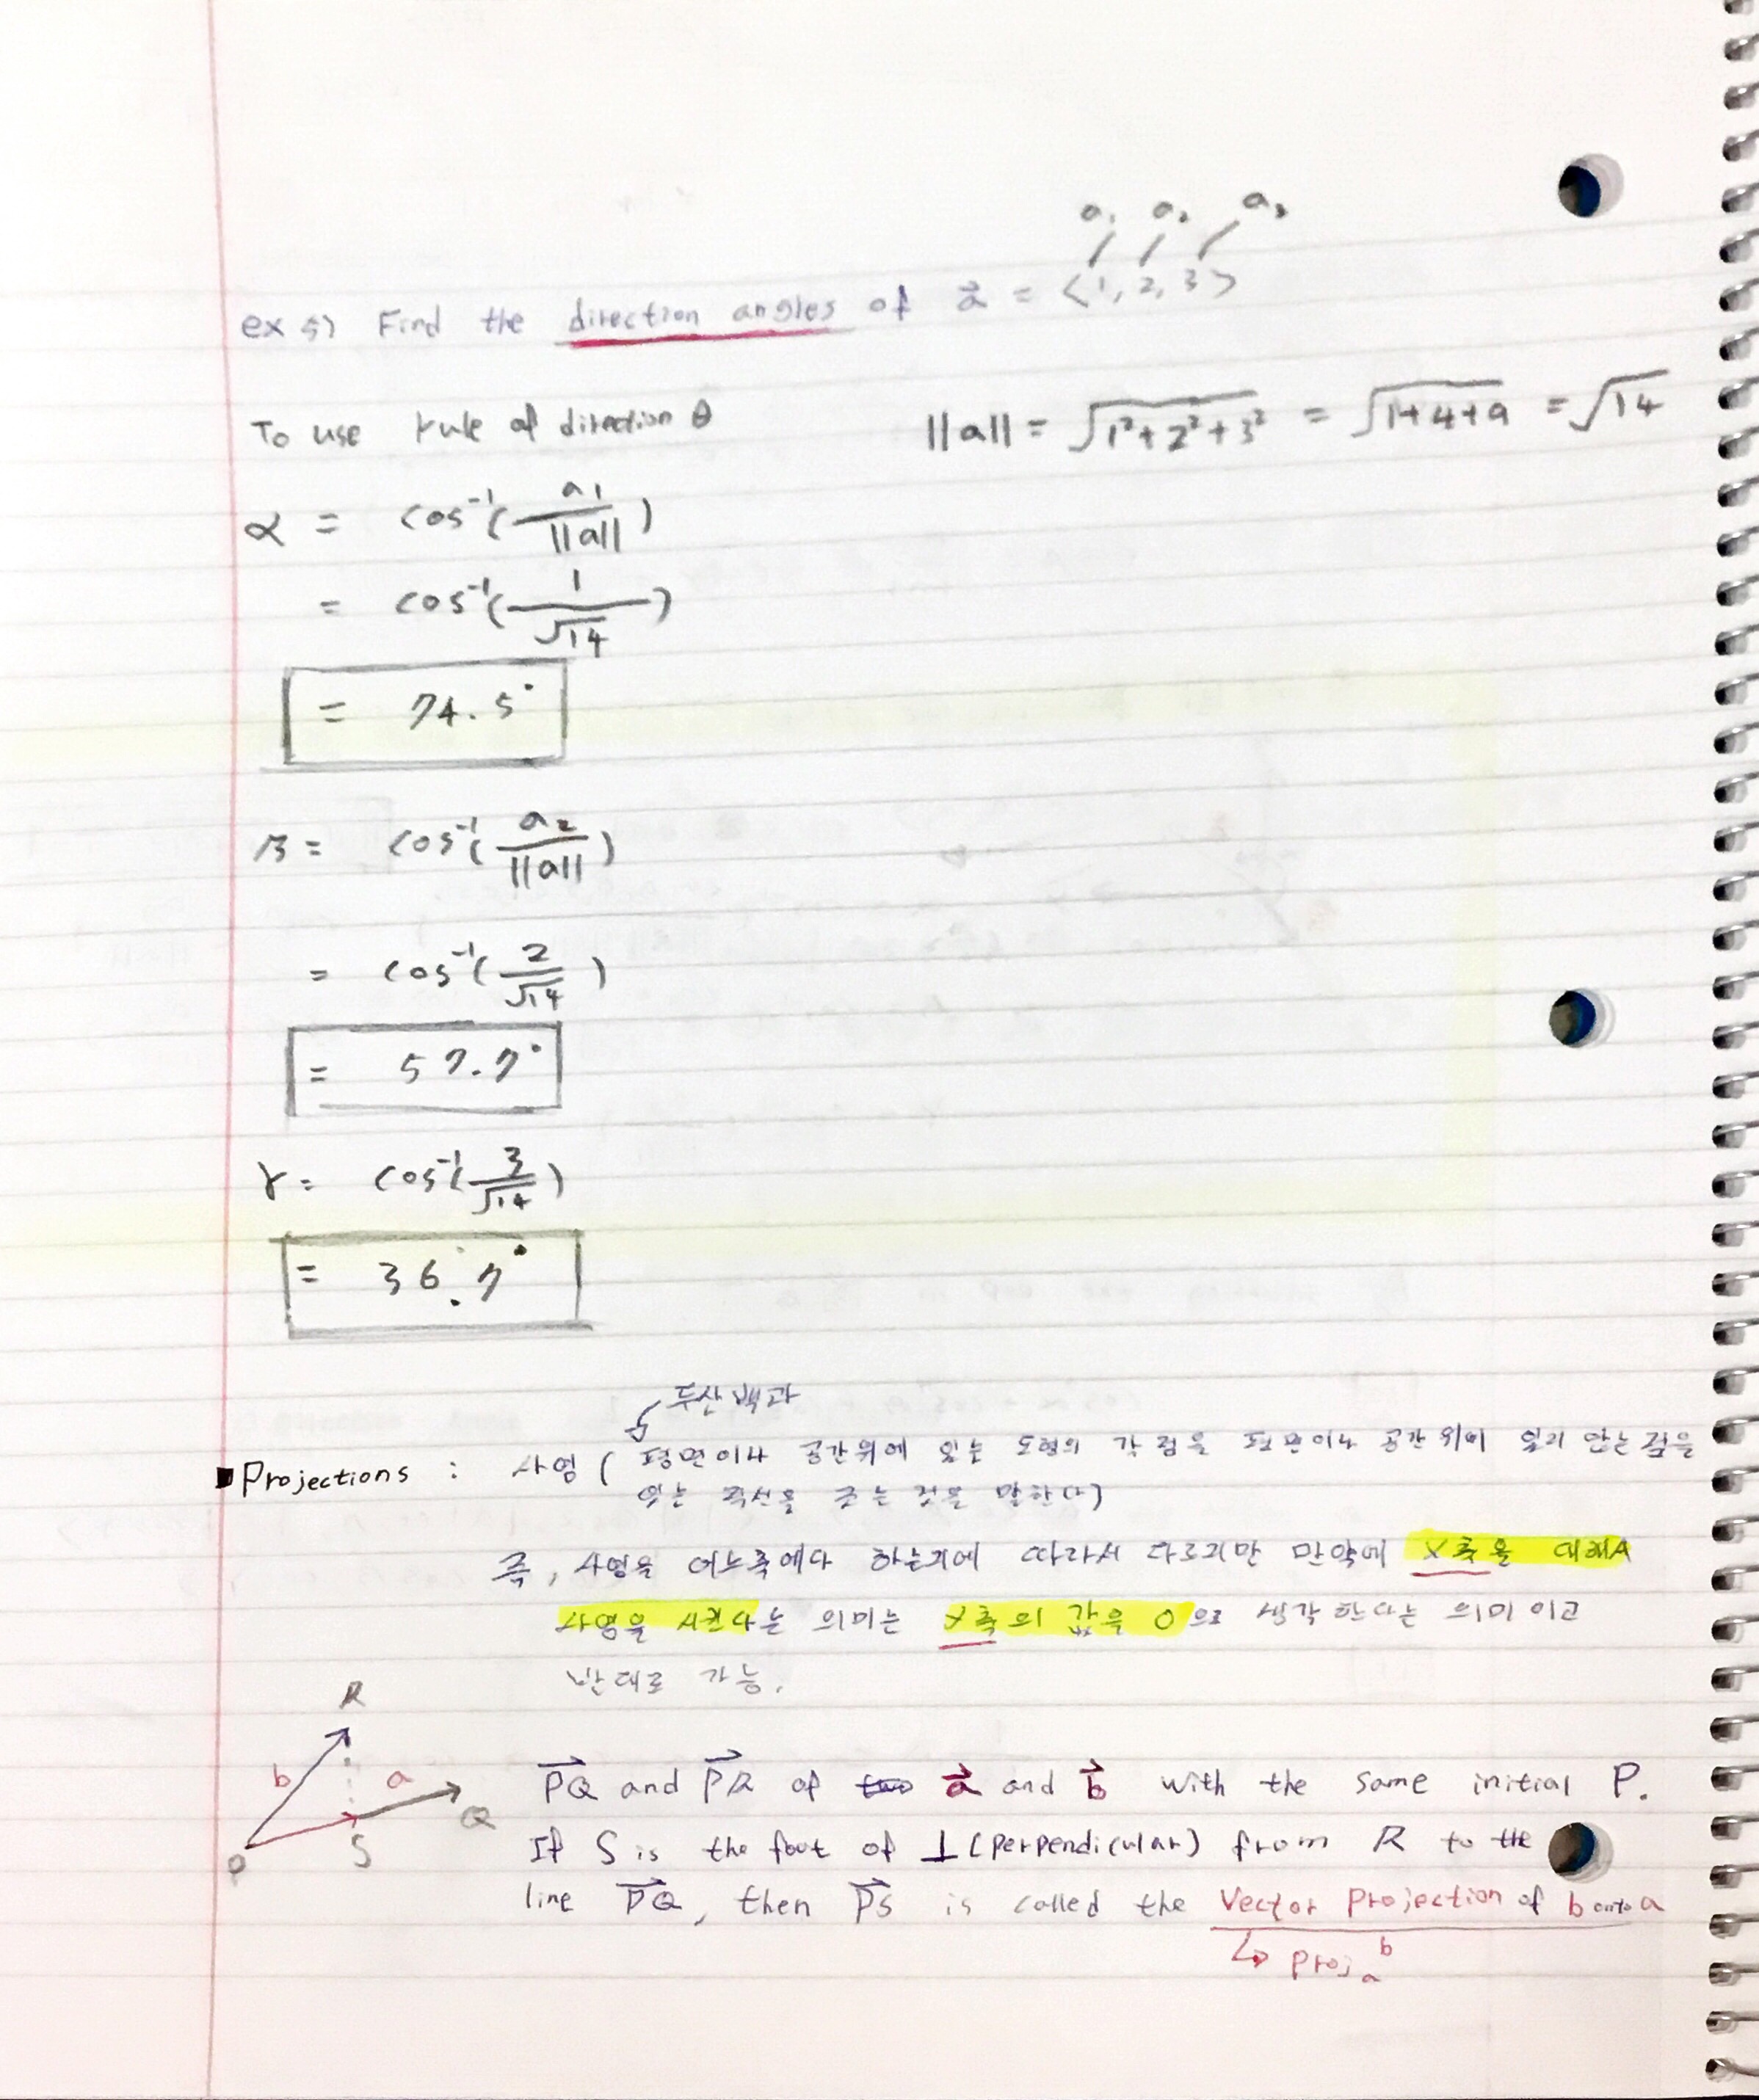 a₁ a₂ a₃
ex 5) Find the direction angles of a⃗ = <1, 2, 3>
To use rule of direction θ
||a|| = √(1²+2²+3²) = √(1+4+9) = √14
α = cos⁻¹(a₁/||a||)
= cos⁻¹(1/√14)
= 74.5°
β = cos⁻¹(a₂/||a||)
= cos⁻¹(2/√14)
= 57.7°
γ = cos⁻¹(3/√14)
= 36.7°
두산백과
Projections : 사영 ( 평면이나 공간위에 있는 도형의 각 점을 평면이나 공간 위에 있지 않는 점을
잇는 직선을 긋는 것을 말한다)
즉, 사영을 어느축에다 하는가에 따라서 다르지만 만약에 X축을 대해서
사영을 시킨다는 의미는 X축의 값을 0으로 생각한다는 의미이고
반대로 가능.
R
b a
Q
P S
PQ⃗ and PR⃗ of a⃗ and b⃗ with the same initial P.
If S is the foot of ⊥ (perpendicular) from R to the
line PQ⃗, then PS⃗ is called the Vector Projection of b onto a
↳ Proj a b